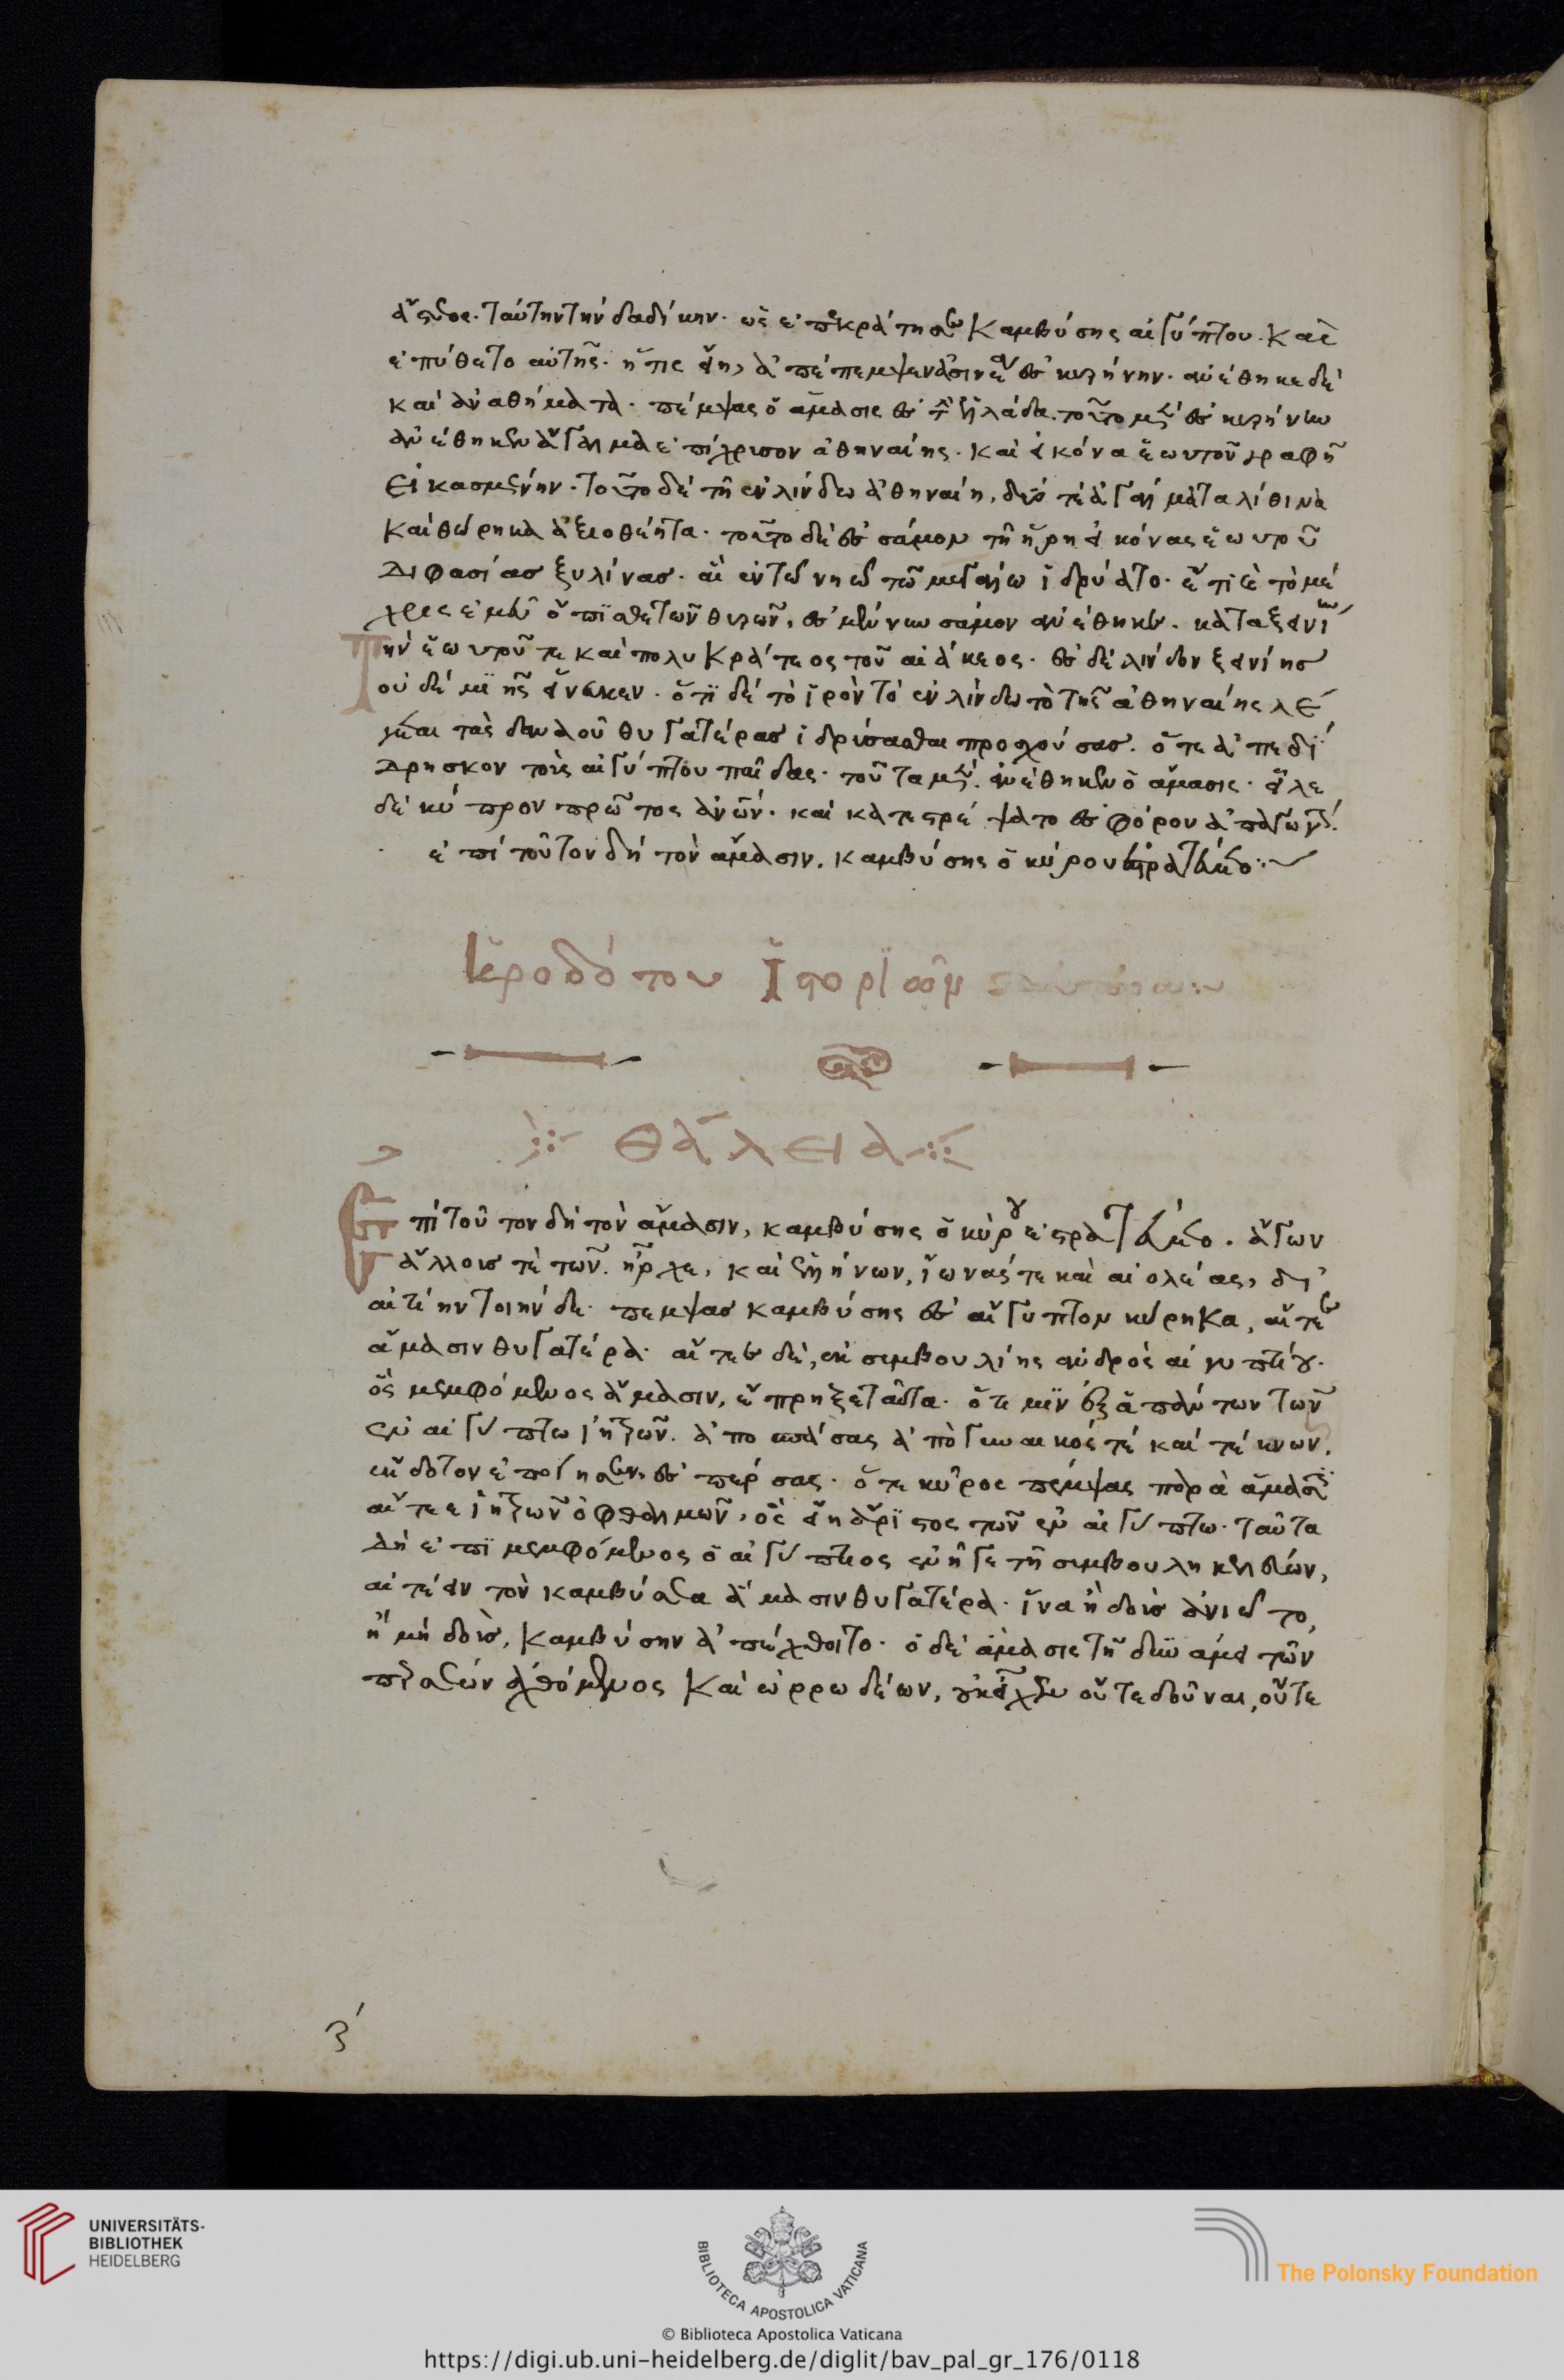 ἄστεος. ταύτην τὴν λαδίκην. ὡς ἐπεκράτησεν Καμβύσης αἰγύπτου. καὶ
ἐπύθετο αὐτῆς. ἥτις εἴη, ἀπέπεμψεν ἀσινέα ἐς κυρήνην. ἀνέθηκε δὲ
καὶ ἀναθήματα. πέμψας ὁ ἄμασις ἐς τὴν ἑλλάδα. τοῦτο μὲν ἐς κυρήνην
ἀνέθηκεν ἄγαλμα ἐπίχρυσον ἀθηναίης. καὶ εἰκόνα ἑωυτοῦ γραφῆ
εἰκασμένην. τοῦτο δὲ τῆ ἐν λίνδω ἀθηναίη, δύο τε ἀγάλματα λίθινα
καὶ θώρηκα ἀξιοθέητα. τοῦτο δὲ ἐς σάμον τῆ ἥρη εἰκόνας ἑωυτοῦ
διφασίας ξυλίνας. αἳ ἐν τῶ νηῶ τῶ μεγάλω ἱδρύατο. ἔτι ἐς τὸ μέ
χρις ἐμεῦ ὄπισθε τῶν θυρέων. ἐς μέν νυν σάμον ἀνέθηκεν. κατὰ ξεινί
ην ἑωυτοῦ τε καὶ πολυκράτεος τοῦ αἰάκεος. ἐς δὲ λίνδον ξεινίης
οὐδεμιῆς εἵνεκεν. ὅτι δὲ τὸ ἱρὸν τὸ ἐν λίνδω τὸ τῆς ἀθηναίης λέ
γεται τὰς δαναοῦ θυγατέρας ἱδρύσασθαι προσχούσας. ὅτε ἀπεδί
δρησκον τοὺς αἰγύπτου παῖδας. τοῦτα μὲν ἀνέθηκεν ὁ ἄμασις. εἷλε
δὲ κύπρον πρῶτος ἀνθρώπων. καὶ κατεστρέψατο ἐς φόρου ἀπαγωγήν.
ἐπὶ τοῦτον δὴ τὸν ἄμασιν, καμβύσης ὁ κύρου ἐστρατεύετο
Ἡροδότου ἱστοριῶν
θάλεια
Ἐπὶ τοῦτον δὴ τὸν ἄμασιν, καμβύσης ὁ κύρου ἐστρατεύετο. ἄγων
ἄλλους τε τῶν ἦρχε, καὶ ἑλλήνων, ἴωνάς τε καὶ αἰολέας, δι'
αἰτίην τοιήνδε. πέμψας καμβύσης ἐς αἴγυπτον κήρυκα, αἴτεε
ἄμασιν θυγατέρα. αἴτεε δὲ, ἐκ συμβουλίης ἀνδρὸς αἰγυπτίου.
ὃς μεμφόμενος ἄμασιν, ἔπρηξε ταῦτα. ὅτι μιν ἐξ ἁπάντων τῶν
ἐν αἰγύπτω ἰητρῶν. ἀποσπάσας ἀπὸ γυναικός τε καὶ τέκνων.
ἔκδοτον ἐποίησεν ἐς πέρσας. ὅτε κῦρος πέμψας παρὰ ἄμασιν
αἴτεε ἰητρὸν ὀφθαλμῶν. ὃς εἴη ἄριστος τῶν ἐν αἰγύπτω. ταῦτα
δὴ ἐπιμεμφόμενος ὁ αἰγύπτιος ἐνῆγε τῆ συμβουλῆ κελεύων,
αἰτέειν τὸν καμβύσεα ἄμασιν θυγατέρα. ἵνα ἢ δοὺς ἀνιῶτο,
ἢ μὴ δοὺς, Καμβύση ἀπέχθοιτο. ὁ δὲ ἄμασις τῆ δυνάμει τῶν
περσέων ἀχθόμενος καὶ ἀρρωδέων, οὐκ εἶχεν οὔτε δοῦναι, οὔτε
ζ΄
UNIVERSITÄTS-
BIBLIOTHEK
HEIDELBERG
BIBLIOTECA APOSTOLICA VATICANA
The Polonsky Foundation
© Biblioteca Apostolica Vaticana
https://digi.ub.uni-heidelberg.de/diglit/bav_pal_gr_176/0118